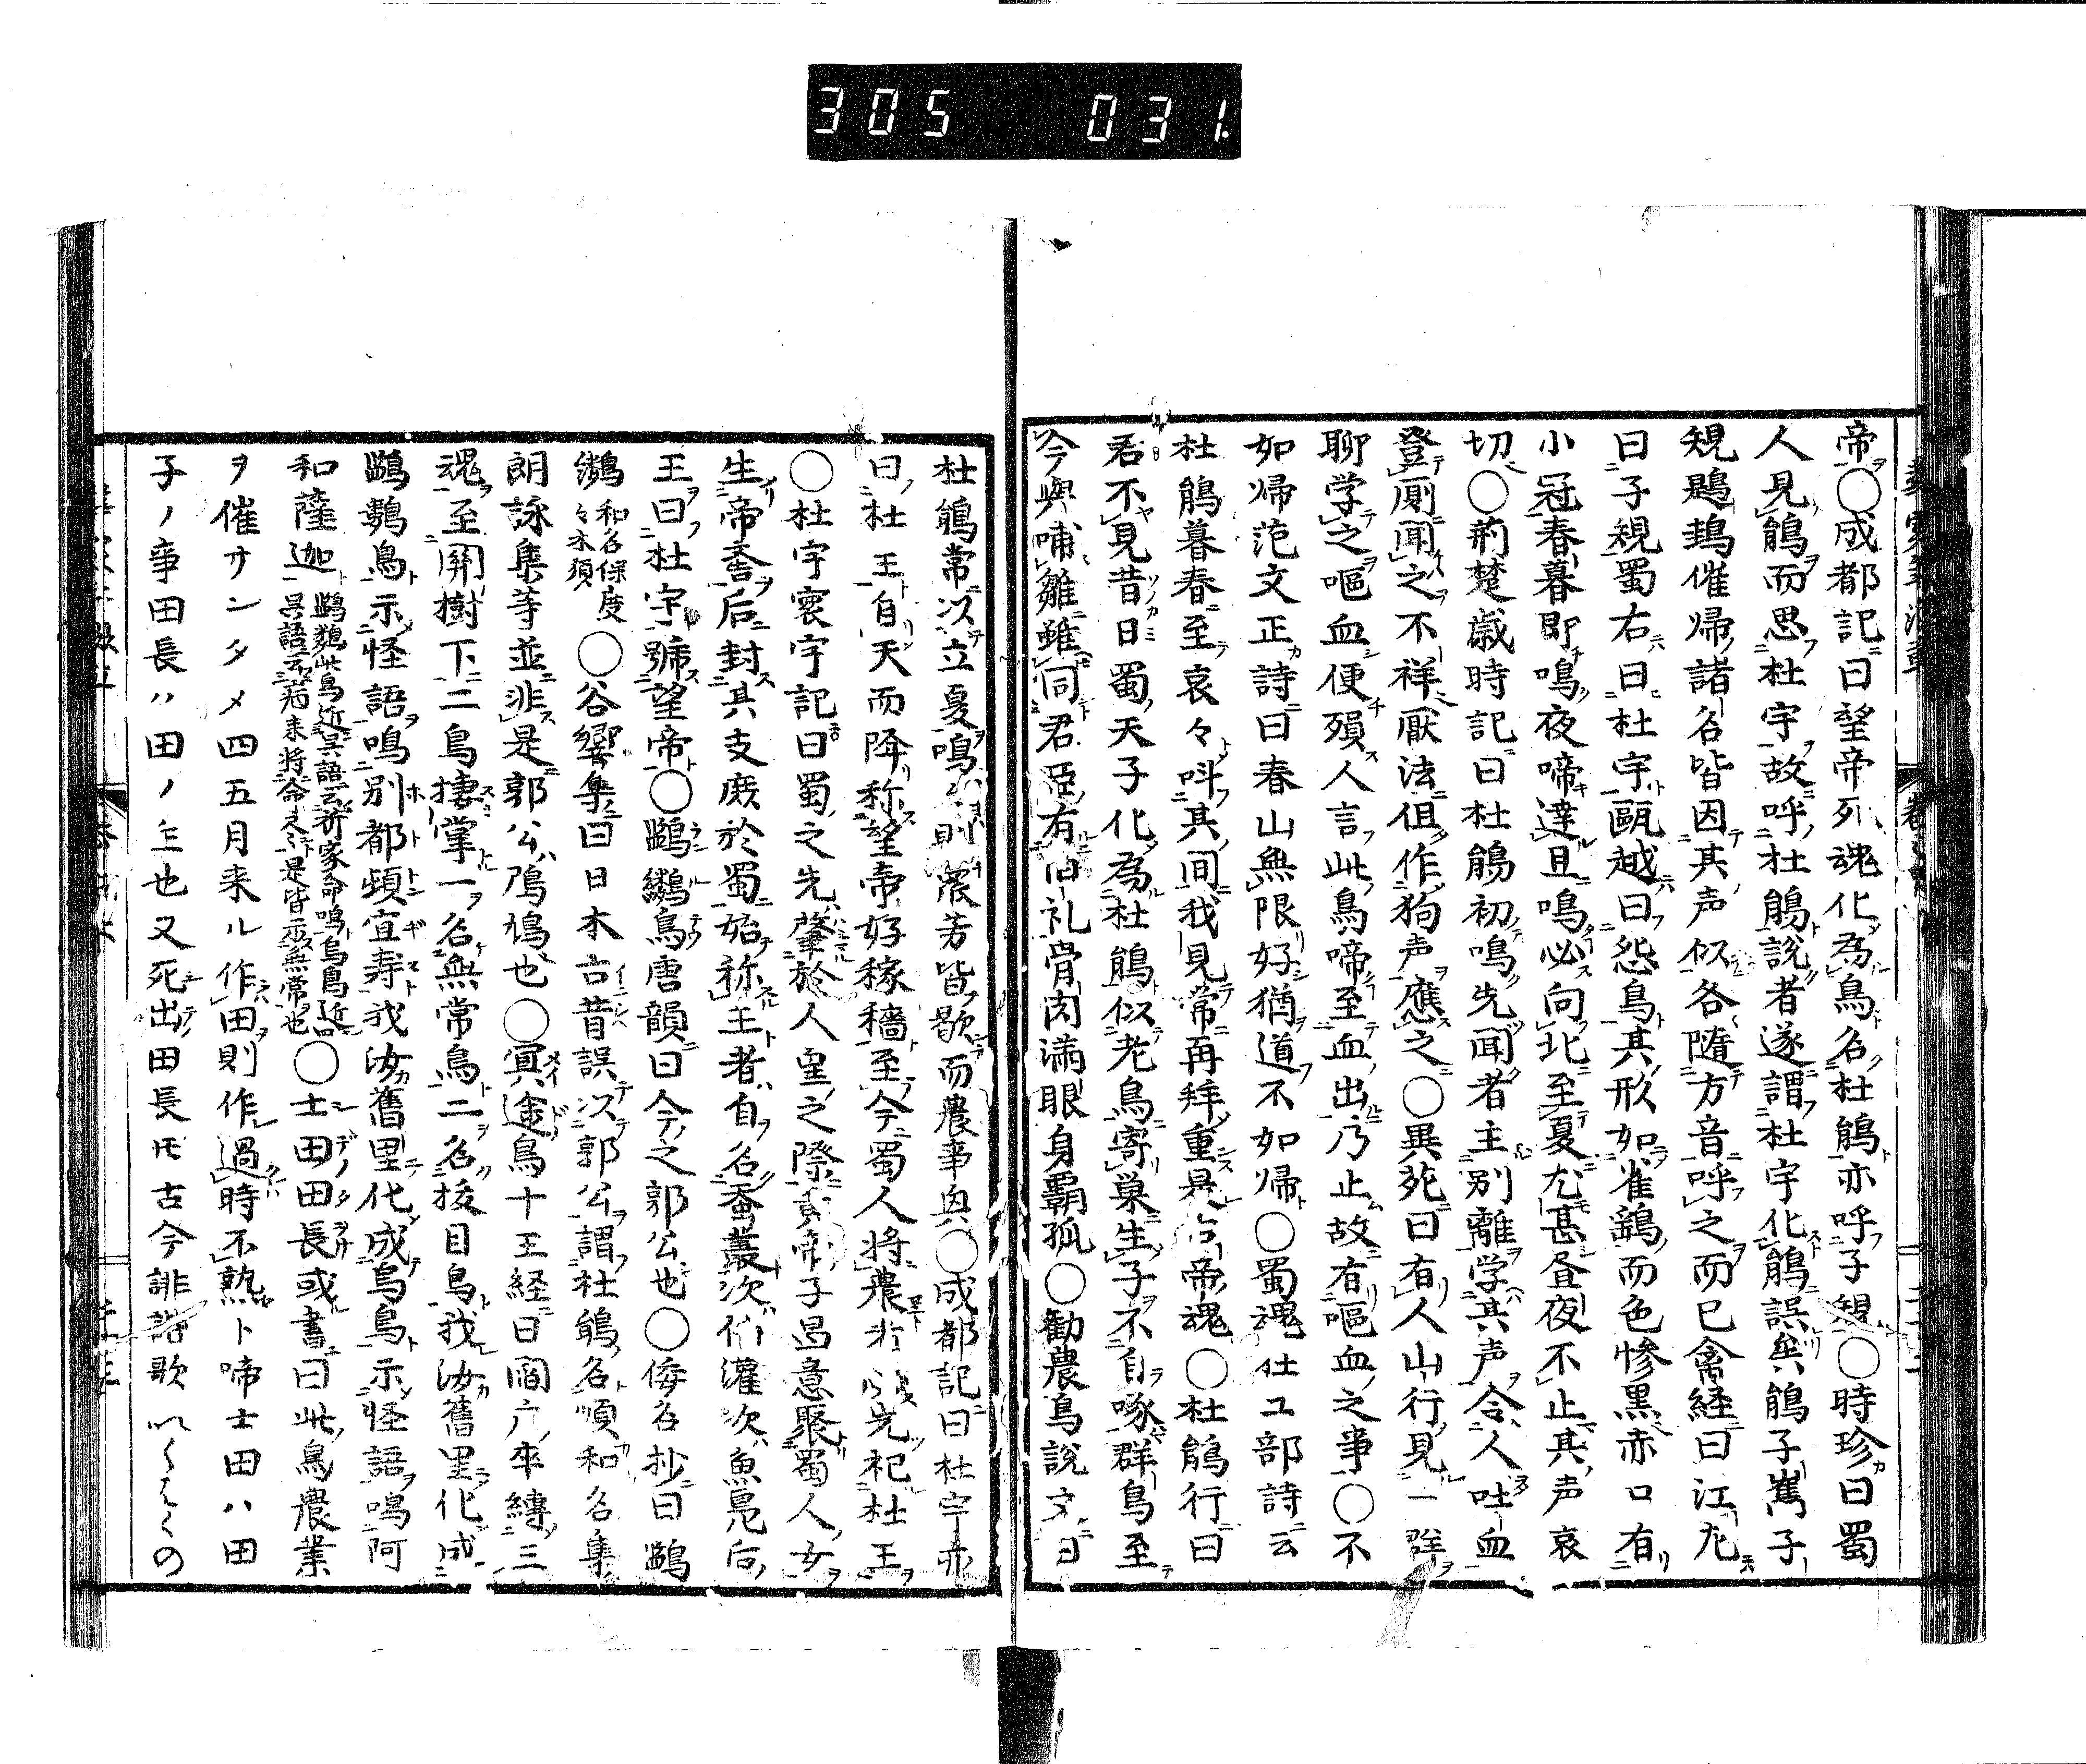 305 031
帝○成都記曰望帝死魂化為鳥名杜鵑亦呼子規○時珍曰蜀
人見鵑而思杜宇故呼杜鵑説者遂謂杜宇化鵑誤矣鵑子嶲子
規鶗鴂催帰諸名皆因其声似各随方音呼之而已禽経曰江左
曰子規蜀右曰杜宇甌越曰怨鳥其形如雀鷂而色惨黒赤口有
小冠春暮即鳴夜啼達旦鳴必向北至夏尤甚昼夜不止其声哀
切○荊楚歳時記曰杜鵑初鳴先聞者主別離学其声令人吐血
登厠聞之不祥厭法但作狗声應之○異苑曰有人山行見一群
聊学之嘔血便殞人言此鳥啼至血出乃止故有嘔血之事○不
如帰范文正詩曰春山無限好猶道不如帰○蜀魂杜工部詩云
杜鵑暮春至哀々叫其間我見常再拜重是古帝魂○杜鵑行曰
君不見昔日蜀天子化為杜鵑似老烏寄巣生子不自啄群鳥至
今與哺雛雖同君臣有旧礼骨肉満眼身羈孤○勧農鳥説文曰
杜鵑常以立夏鳴鳴則衆芳皆歇而農事興○成都記曰杜宇亦
曰杜王自天而降称望帝好稼穡至今蜀人将農者必先祀杜王
○杜宇寰宇記曰蜀之先肇於人皇之際黄帝子昌意娶蜀人女
生帝嚳后封其支庶於蜀始称王者自名蚕叢次伯灌次魚鳧后
王曰杜宇號望帝○鷜鵴鳥唐韻曰今之郭公也○倭名抄曰鷜
鵴和名保度々木須○谷響集曰日本古昔誤以郭公謂杜鵑名順和名集
朗詠集等並非是郭公鳲鳩也○冥途鳥十王経曰閻广卒縛三
魂至関樹下二鳥棲掌一名無常鳥二名抜目鳥我汝舊里化成
鷜鵴鳥示怪語鳴別都頓宜寿我汝舊里化成烏鳥示怪語鳴阿
和薩迦○士田田長或書曰此鳥農業
ヲ催サンタメ四五月来ル作田則作過時不熟ト啼士田ハ田
子ノ事田長ハ田ノ主也又死出田長モ古今誹諧歌いくはくの